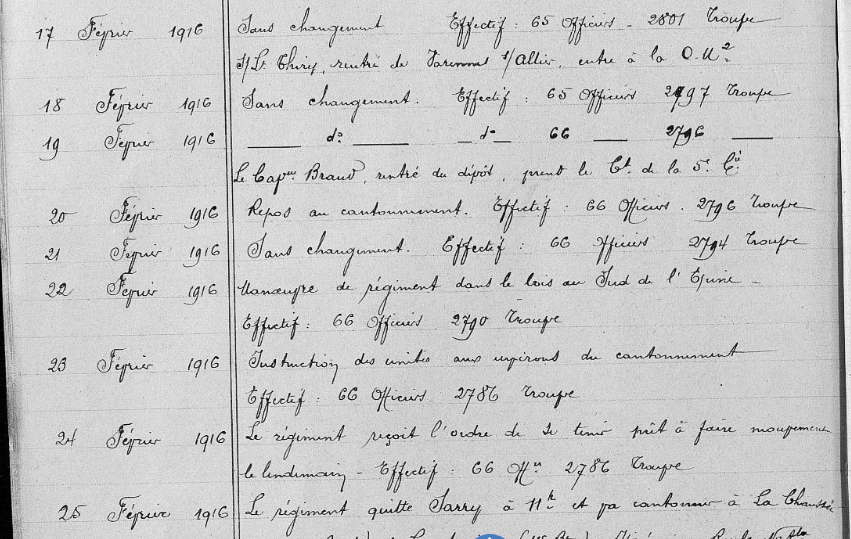 17 Février 1916 Sans changement Effectif : 65 Officiers - 2801 Troupe
S/Lt Thiry, rentré de Varennes s/Allier, entre à la C.M.2
18 Février 1916 Sans changement. Effectif : 65 Officiers 2797 Troupe
19 Février 1916 — do — — do — 66 — 2796 —
Le Capne Braud, rentré du dépôt, prend le Ct de la 5e Cie
20 Février 1916 Repos au cantonnement. Effectif : 66 Officiers. 2796 Troupe
21 Février 1916 Sans changement. Effectif : 66 Officiers 2794 Troupe
22 Février 1916 Manœuvre de régiment dans le bois au Sud de l'Epine
Effectif : 66 Officiers 2790 Troupe
23 Février 1916 Instruction des unités aux environs du cantonnement
Effectif : 66 Officiers 2786 Troupe
24 Février 1916 Le régiment reçoit l'ordre de se tenir prêt à faire mouvement
le lendemain - Effectif : 66 Offrs 2786 Troupe
25 Février 1916 Le régiment quitte Sarry à 11h et va cantonner à La Chaussée